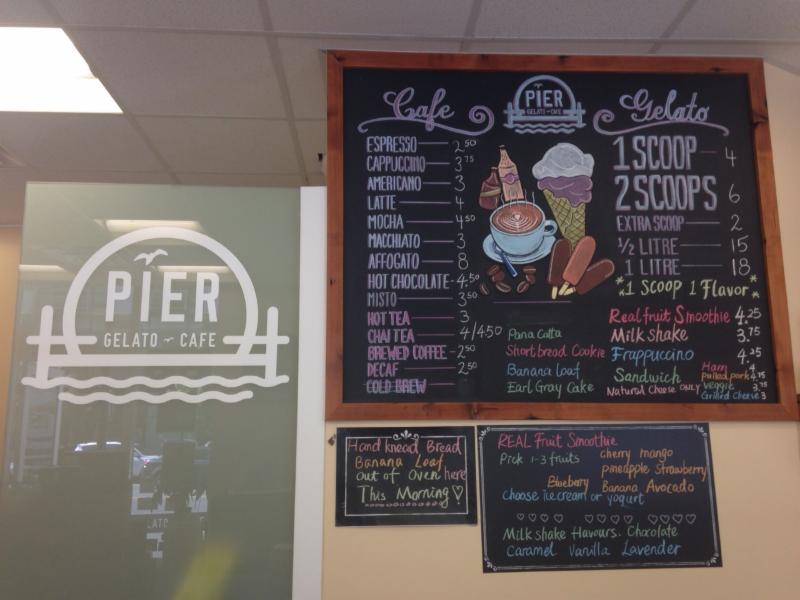 PIER
GELATO CAFE
Cafe
PIER
GELATO CAFE
Gelato
ESPRESSO 2.50
CAPPUCCINO 3.75
AMERICANO 3
LATTE 4
MOCHA 4.50
MACCHIATO 3
AFFOGATO 8
HOT CHOCOLATE 4.50
MISTO 3.50
HOT TEA 3
CHAI TEA 4/4.50
BREWED COFFEE 2.50
DECAF 2.50
COLD BREW
Pana Catta
Shortbread Cookie
Banana Loaf
Earl Gray Cake
1 SCOOP 4
2 SCOOPS 6
EXTRA SCOOP 2
1/2 LITRE 15
1 LITRE 18
*1 Scoop 1 Flavor*
Real fruit Smoothie 4.25
Milk shake 3.75
Frappuccino 4.25
Sandwich
Ham 4
pulled pork 4.75
Natural Cheese ONLY
veggie 3.75
Grilled Cheese 3
Hand knead Bread
Banana Loaf
out of Oven here
This Morning
REAL Fruit Smoothie
Pick 1-3 fruits cherry mango
pineapple Strawberry
Blueberry Banana Avocado
Choose ice cream or yogurt
Milk shake Flavours: Chocolate
Caramel Vanilla Lavender